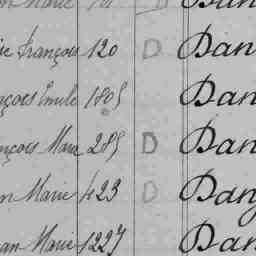 Marie D Dan
François 120 D Dan
Emile 1805 Dan
Marie 285 D Dan
Marie 423 D Dang
Marie 1227 Dan